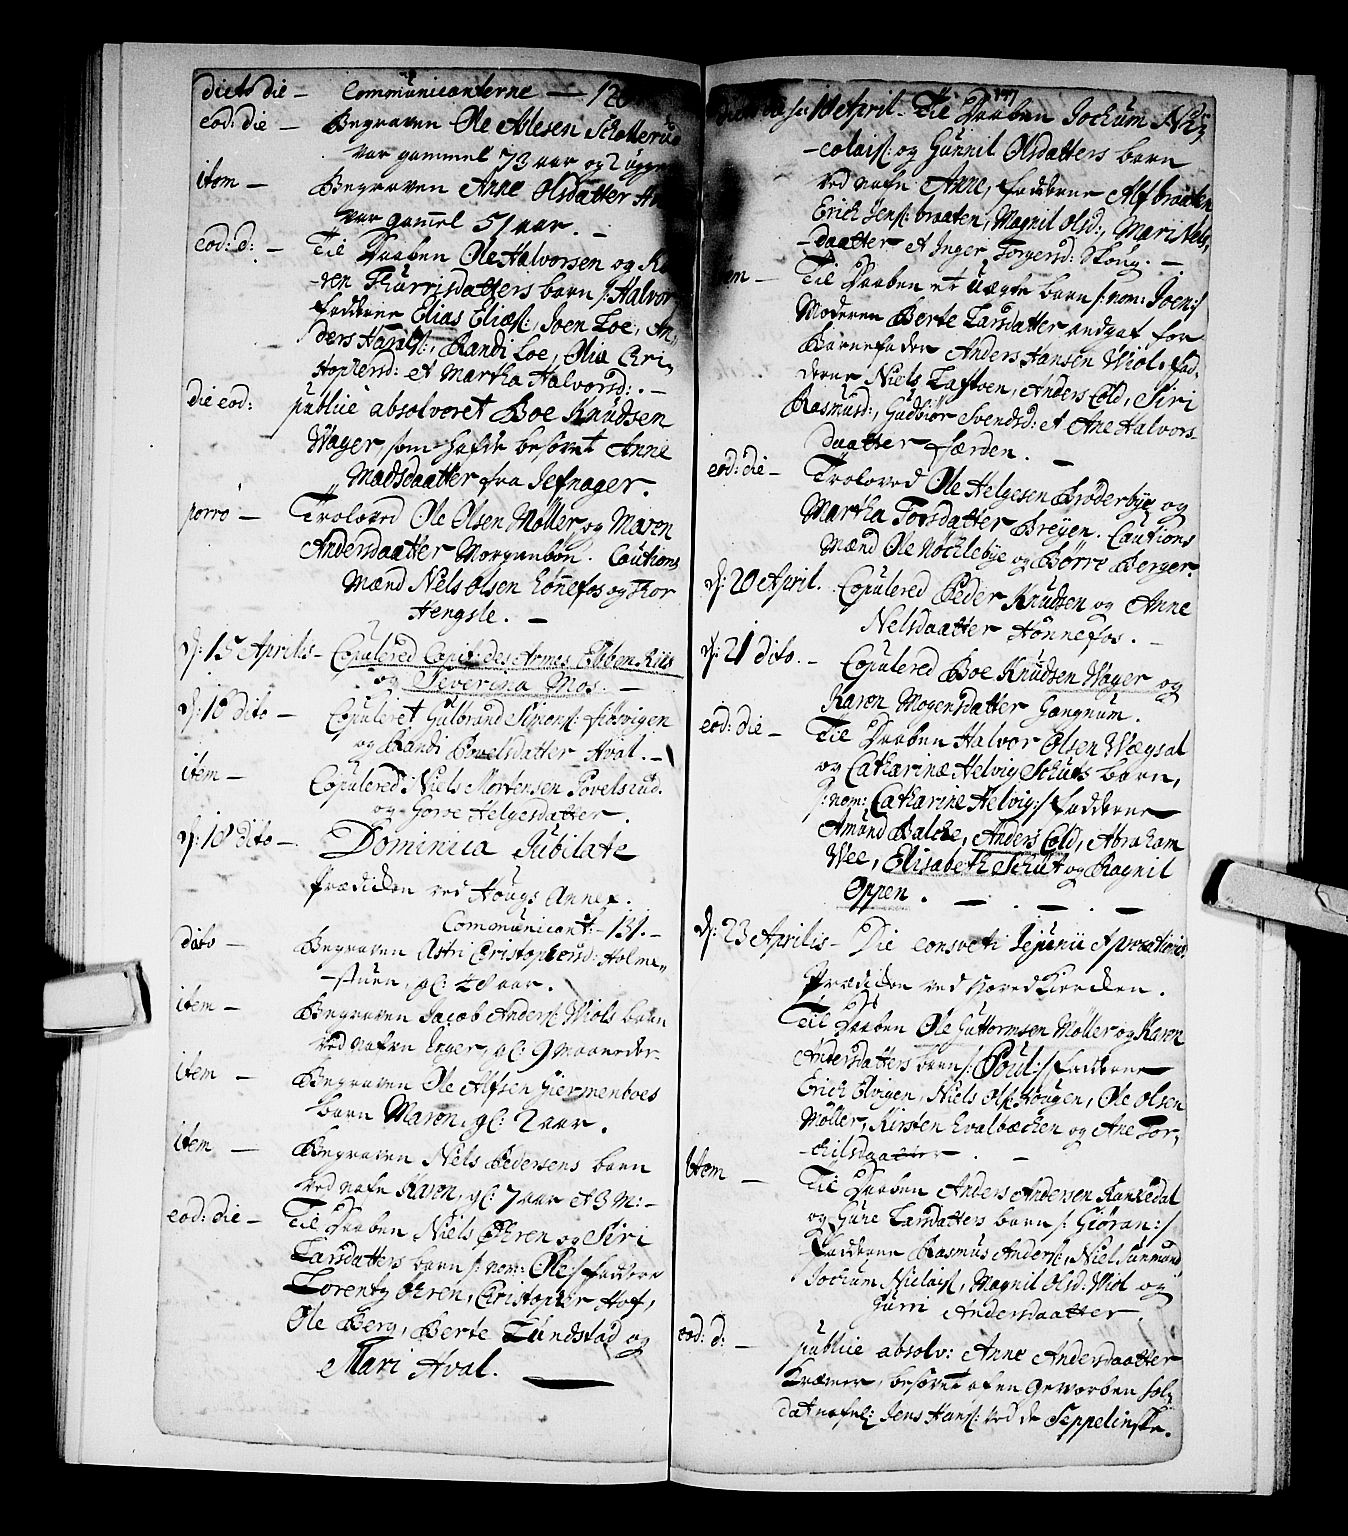 dicto die — Communicanterne — 120
eod: die — Begraven Ole Alesen Schollerud
var gammel 73 aar og 2 ugger
item — Begraven Anne Olsdatter
var gamel 51 aar. —
eod: d: — Til Daaben Ole Halvorsen og
ren Thurrisdatters barn /: Halvor
fadderne Elias Eliæs:, Joen Loe, An-
ders Hans:, Randi Loe, Olia Chri-
stophersd: et Martha Halvorsd: . —
die eod: publice absolveret Boe Knudsen
Wager som hafde besovet Anne
Madsdaatter fra Jefnager.
porro — Troloved Ole Olsen Møller og Maren
Andersdaatter Morgenbon. Cautions
Mænd Nels Olsen Hønnefos og Thor
Hengsle. —
d: 15 Aprilis — Copulered Capit: des Armes Ebben Riis
og Severina Mos. —
d: 16 dito — Copuleret Gulbrand Simons: Hørvigen
og Randi Povelsdatter Hval. —
item — Copulered Niels Mortensen Povelsrud
og Gorve Helgesdatter.
d: 18 dito — Dominica Jubilate
Prædicken ved Hougs Annex.
Communicant: 131. —
dito — Begraven Astri Christophersd: Holme-
stuen, gl: 48 aar.
item — Begraven Jacob Anders: Wiols barn
ved nafn Inger, gl: 9 Maaneder —
item — Begraven Ole Alfsen Giermenboes
barn Maren, gl: 2 aar.
item — Begraven Nels Pedersens barn
ved nafn Karen, gl: 7 aar et 3 M: —
eod: die — Til Daaben Niels Ohren og Siri
Larsdatters barn /: nom: Ole :/ faddere
Lorentz Ohren, Christopher Hof,
Ole Berg, Berte Lundstad og
Mari Hval. —
177
dicto die sc: 18 April. Til Daaben Jochum Ni-
colais: og Gunnil Olsdatters barn
ved nafn Anne, fadderne Alf braaten
Erich Jens: braaten, Magnil Olsd:, Mari Nels-
daatter et Inger Torgersd: Skoug. —
item — Til Daaben et uægte barn /: nom: Joen :/
Moderen Berte Larsdatter andgaf for
Barnefader Anders Hansen Wiol. fad-
derne Niels Laftoen, Anders Cold, Siri
Rasmusd:, Gudbiør Svendsd: et Ane Halvors-
daatter Færden. —
eod: die — Troloved Ole Helgesen Broderbye og
Martha Torsdatter Breyen. Cautions
Mænd Ole Nøchlebye og Børre Berger.
d: 20 April. Copulered Peder Knudsen og Anne
Nelsdaatter Hønnefos. —
d: 21 dito. — Copulered Boe Knudsen Wager og
Karen Mogensdatter Gangnum.
eod: die — Til Daaben Halvor Olsen Wægsal
og Catharinæ Helvig Schuts barn,
/: nom: Catharine Helvig :/ fadderne
Amund Balche, Anders Cold, Abraham
Wee, Elisabeth Schut og Ragnil
Oppen. — . — . —
d: 23 Aprilis — Die consveti Jejunii et precationis,
Prædicken ved Hovedkiercken.
Til Daaben Ole Guttormsen Møller og Karen
Andersdatters barn /: Poul :/ fadderne
Erich Elvigen, Niels Ols: Hougen, Ole Olsen
Møller, Kirsten Hvalbæchen og Ane Tor-
chilsdaatter. —
Item — Til Daaben Anders Andersen Ranzedal
og Gure Larsdatters barn /: Giøran :/
Fadderne Rasmus Anders:, Niel Sunmand
Jochum Niclais:, Magnil Olsd: Miol og
Gurri Andersdaatter.
eod: d: — publice absolv: Anne Andersdaatter
Kræmer, besovet af en Geworben sol-
dat nafnl: Jens Hans: ved de Seppelinske.